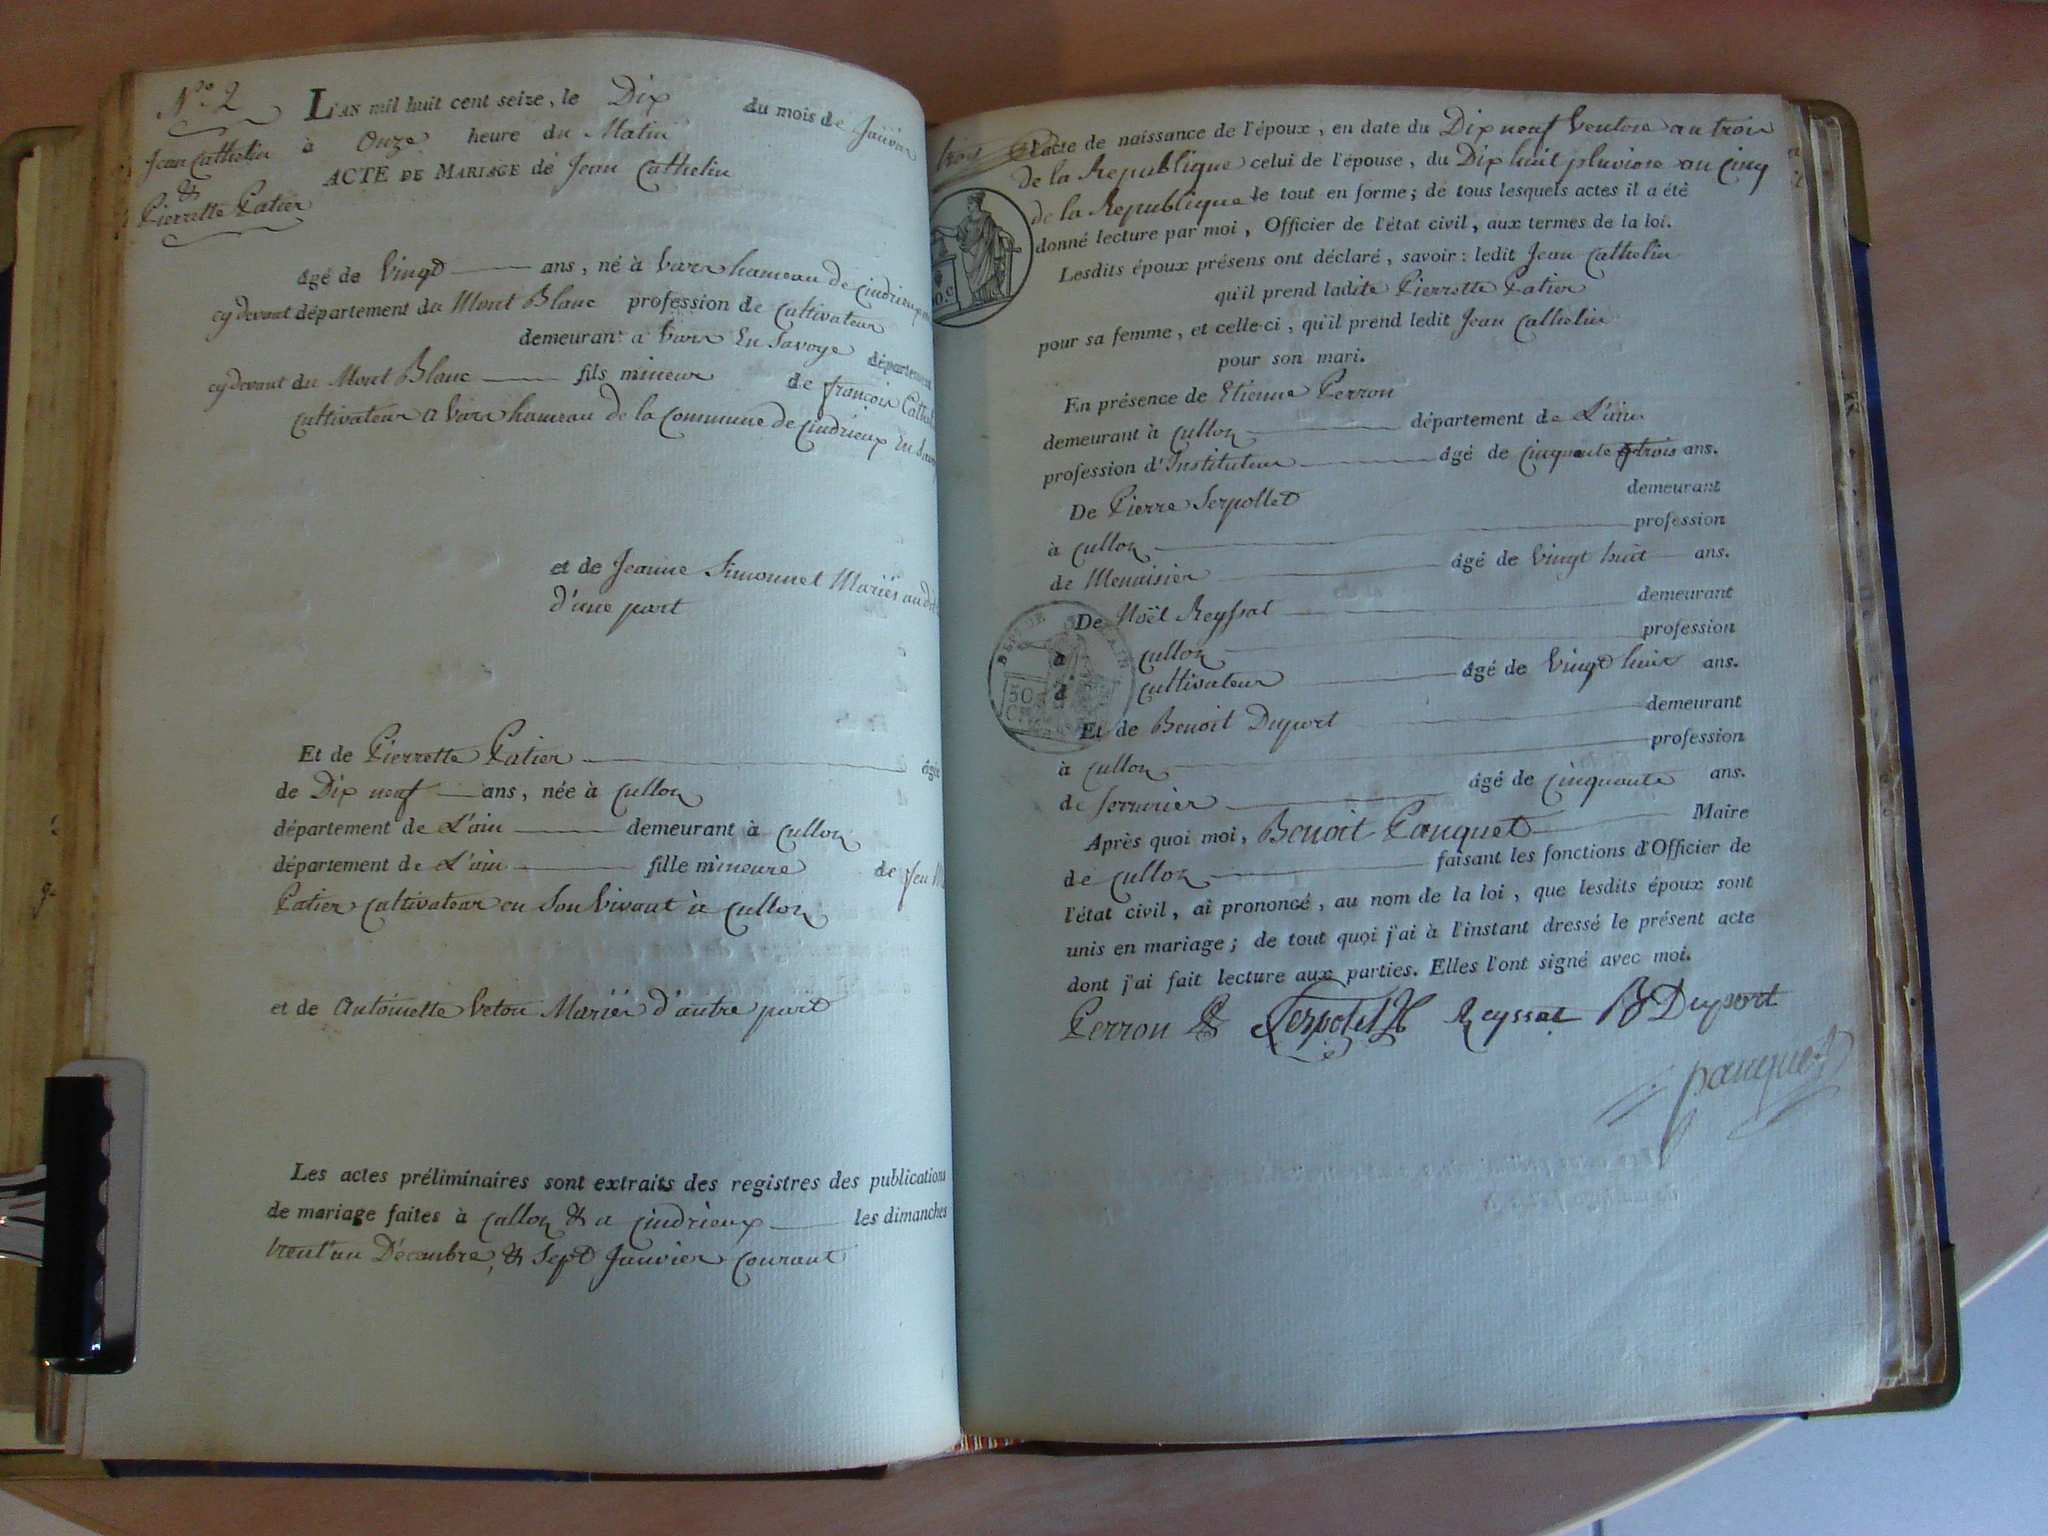 N.° 2
Jean Cathelin
&
Pierrette Patier
L'AN mil huit cent seize, le Dix du mois de Janvier
à Onze heure du Matin
ACTE DE MARIAGE de Jean Cathelin
âgé de Vingt ans, né à Vars hameau de Cindrieux
cy devant département du Mont Blanc profession de Cultivateur
demeurant a Vars En Savoye département
cy devant du Mont Blanc fils mineur de françois
Cultivateur a Vars hameau de la Commune de Cindrieux En
et de Jeanne Simonnet Mariés
d'une part
Et de Pierrette Patier âgée
de Dix neuf ans, née à Culloz
département de L'ain demeurant à Culloz
département de L'ain fille mineure de feu
Patier Cultivateur en Son Vivant à Culloz
et de Antoinette Veton Mariés d'autre part
Les actes préliminaires sont extraits des registres des publications
de mariage faites à Culloz & a Cindrieux les dimanches
trent'un Décembre, & Sept Janvier Courant
trois
l'acte de naissance de l'époux, en date du Dix neuf Ventose an trois
de la Republique celui de l'épouse, du Dix huit pluviose an Cinq
de la Republique le tout en forme; de tous lesquels actes il a été
donné lecture par moi, Officier de l'état civil, aux termes de la loi.
Lesdits époux présens ont déclaré, savoir: ledit Jean Cathelin
qu'il prend ladite Pierrette Patier
pour sa femme, et celle-ci, qu'il prend ledit Jean Cathelin
pour son mari.
En présence de Etienne Perron
demeurant à Culloz département de L'ain
profession d'Instituteur âgé de Cinquante trois ans.
De Pierre Serpollet demeurant
à Culloz profession
de Menuisier âgé de Vingt huit ans.
De Noël Reyssat demeurant
à Culloz profession
d Cultivateur âgé de Vingt huit ans.
50
Et de Benoit Duport demeurant
à Culloz profession
de Serrurier âgé de Cinquante ans.
Après quoi moi, Benoit Pauquet Maire
de Culloz faisant les fonctions d'Officier de
l'état civil, ai prononcé, au nom de la loi, que lesdits époux sont
unis en mariage; de tout quoi j'ai à l'instant dressé le présent acte
dont j'ai fait lecture aux parties. Elles l'ont signé avec moi.
Perron Serpolet Reyssat B Duport
pauquet